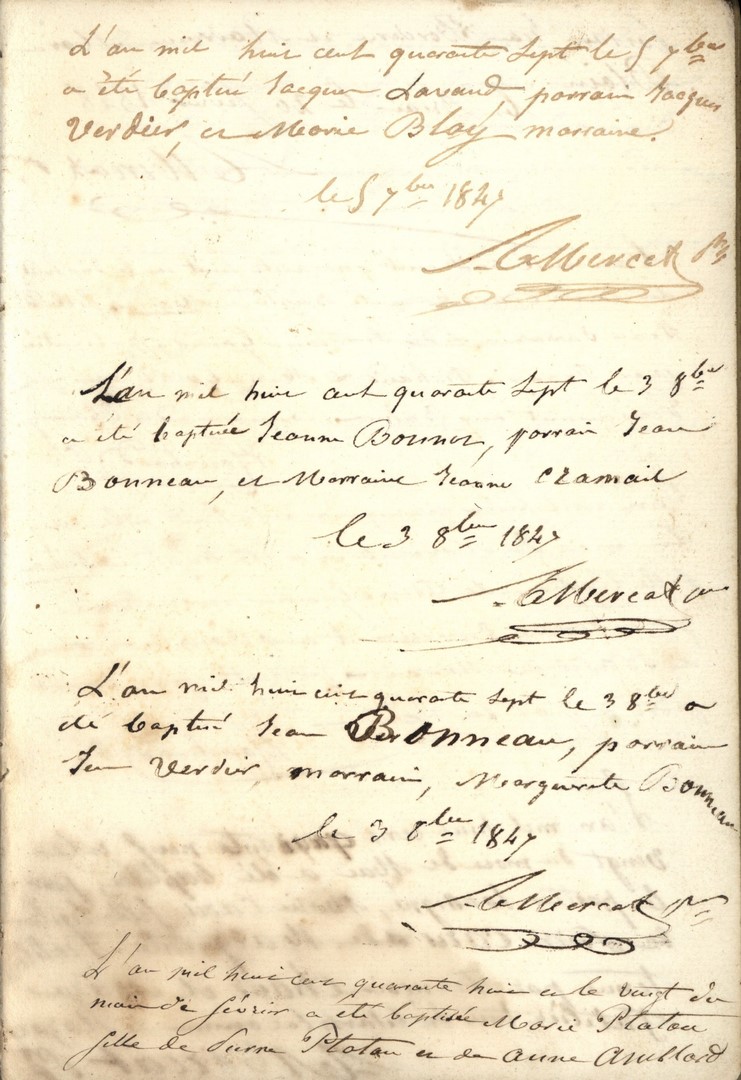 L'an mil huit cent quarante sept le 5 7bre
a été baptisé Jacques Lavaud, parrain Jacques
Verdier, et Marie Bloÿ marraine.
le 5 7bre 1847
Mercat
L'an mil huit cent quarante sept le 3 8bre
a été baptisée Jeanne Bonnot, parrain Jean
Bonneau, et Marraine Jeanne Cramail
le 3 8bre 1847
Mercat
L'an mil huit cent quarante sept le 3 8bre a
été baptisé Jean Bonneau, parrain
Jean Verdier, marrain, Marguerite Bonneau
le 3 8bre 1847
Mercat
L'an mil huit cent quarante huit et le vingt du
mois de févrir a été baptisée Marie Platau
fille de Pierre Platau et de Anne